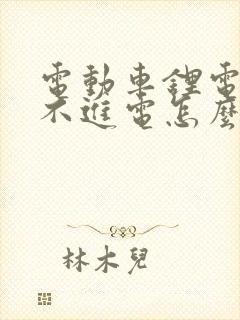 電動車鋰電
不進電怎麼
林木兒